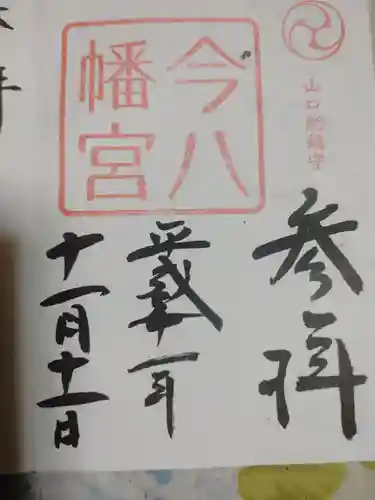 山口総鎮守
参拝
今八
幡宮
平成廿一年
十一月十一日
年